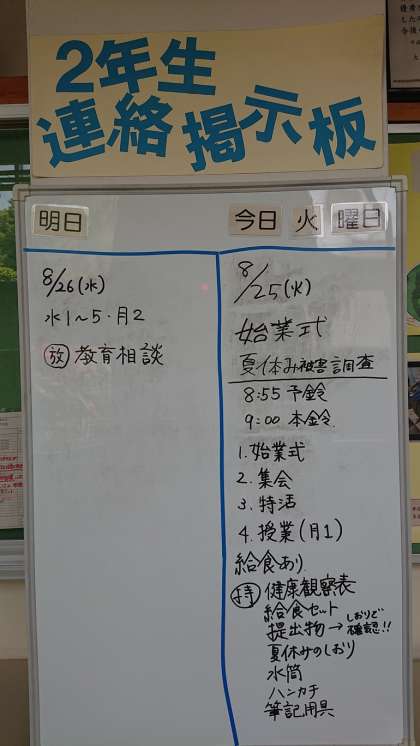 2年生
連絡掲示板
明日
8/26(水)
水1〜5・月2
放 教育相談
今日 火 曜日
8/25(火)
始業式
夏休み被害調査
8:55 予鈴
9:00 本鈴
1.始業式
2.集会
3.特活
4.授業(月1)
給食あり
持 健康観察表
給食セット
提出物→しおりで
確認!!
夏休みのしおり
水筒
ハンカチ
筆記用具